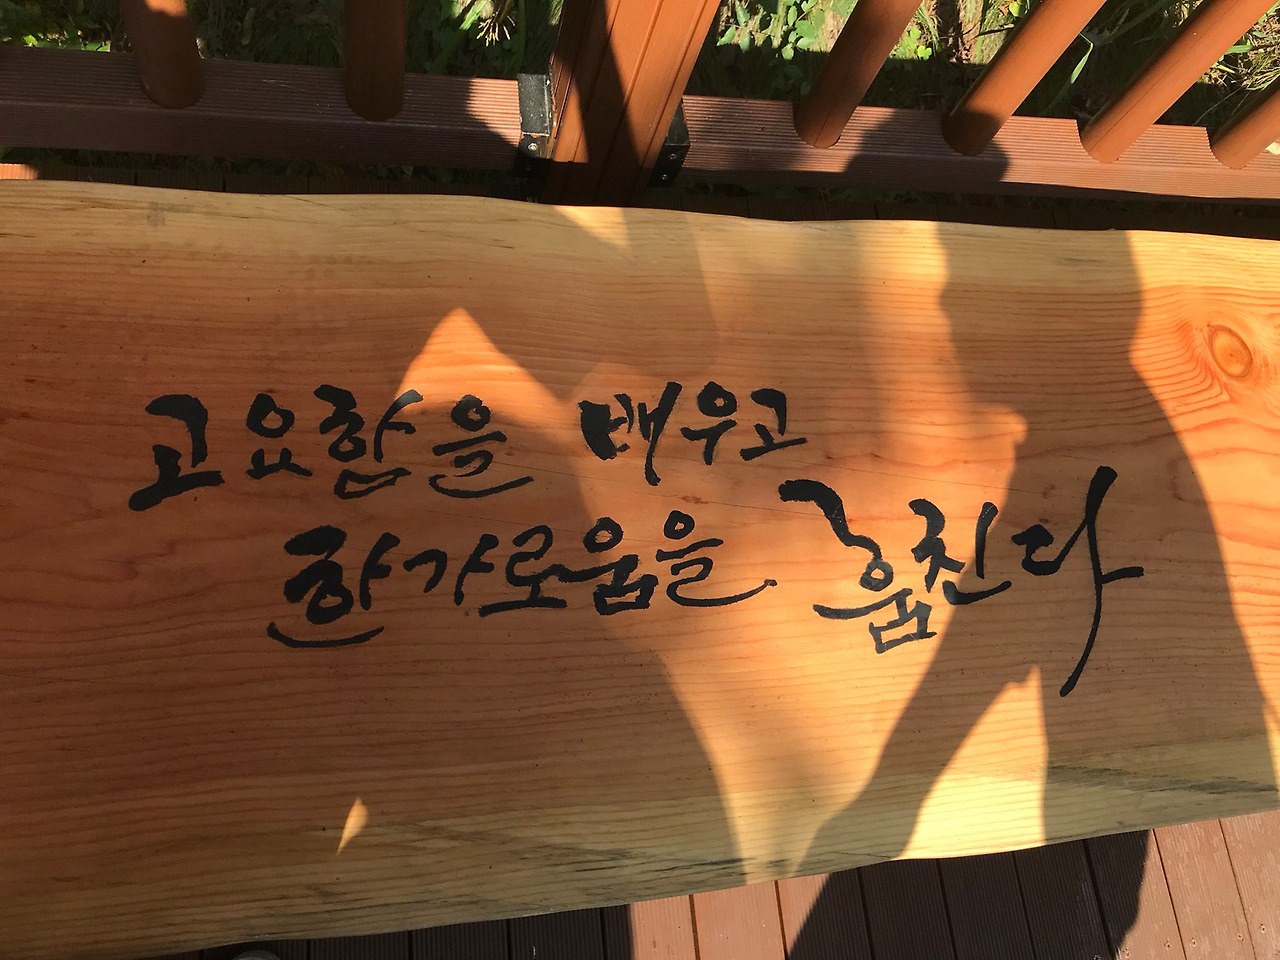 고요함을 배우고
한가로움을 훔친다